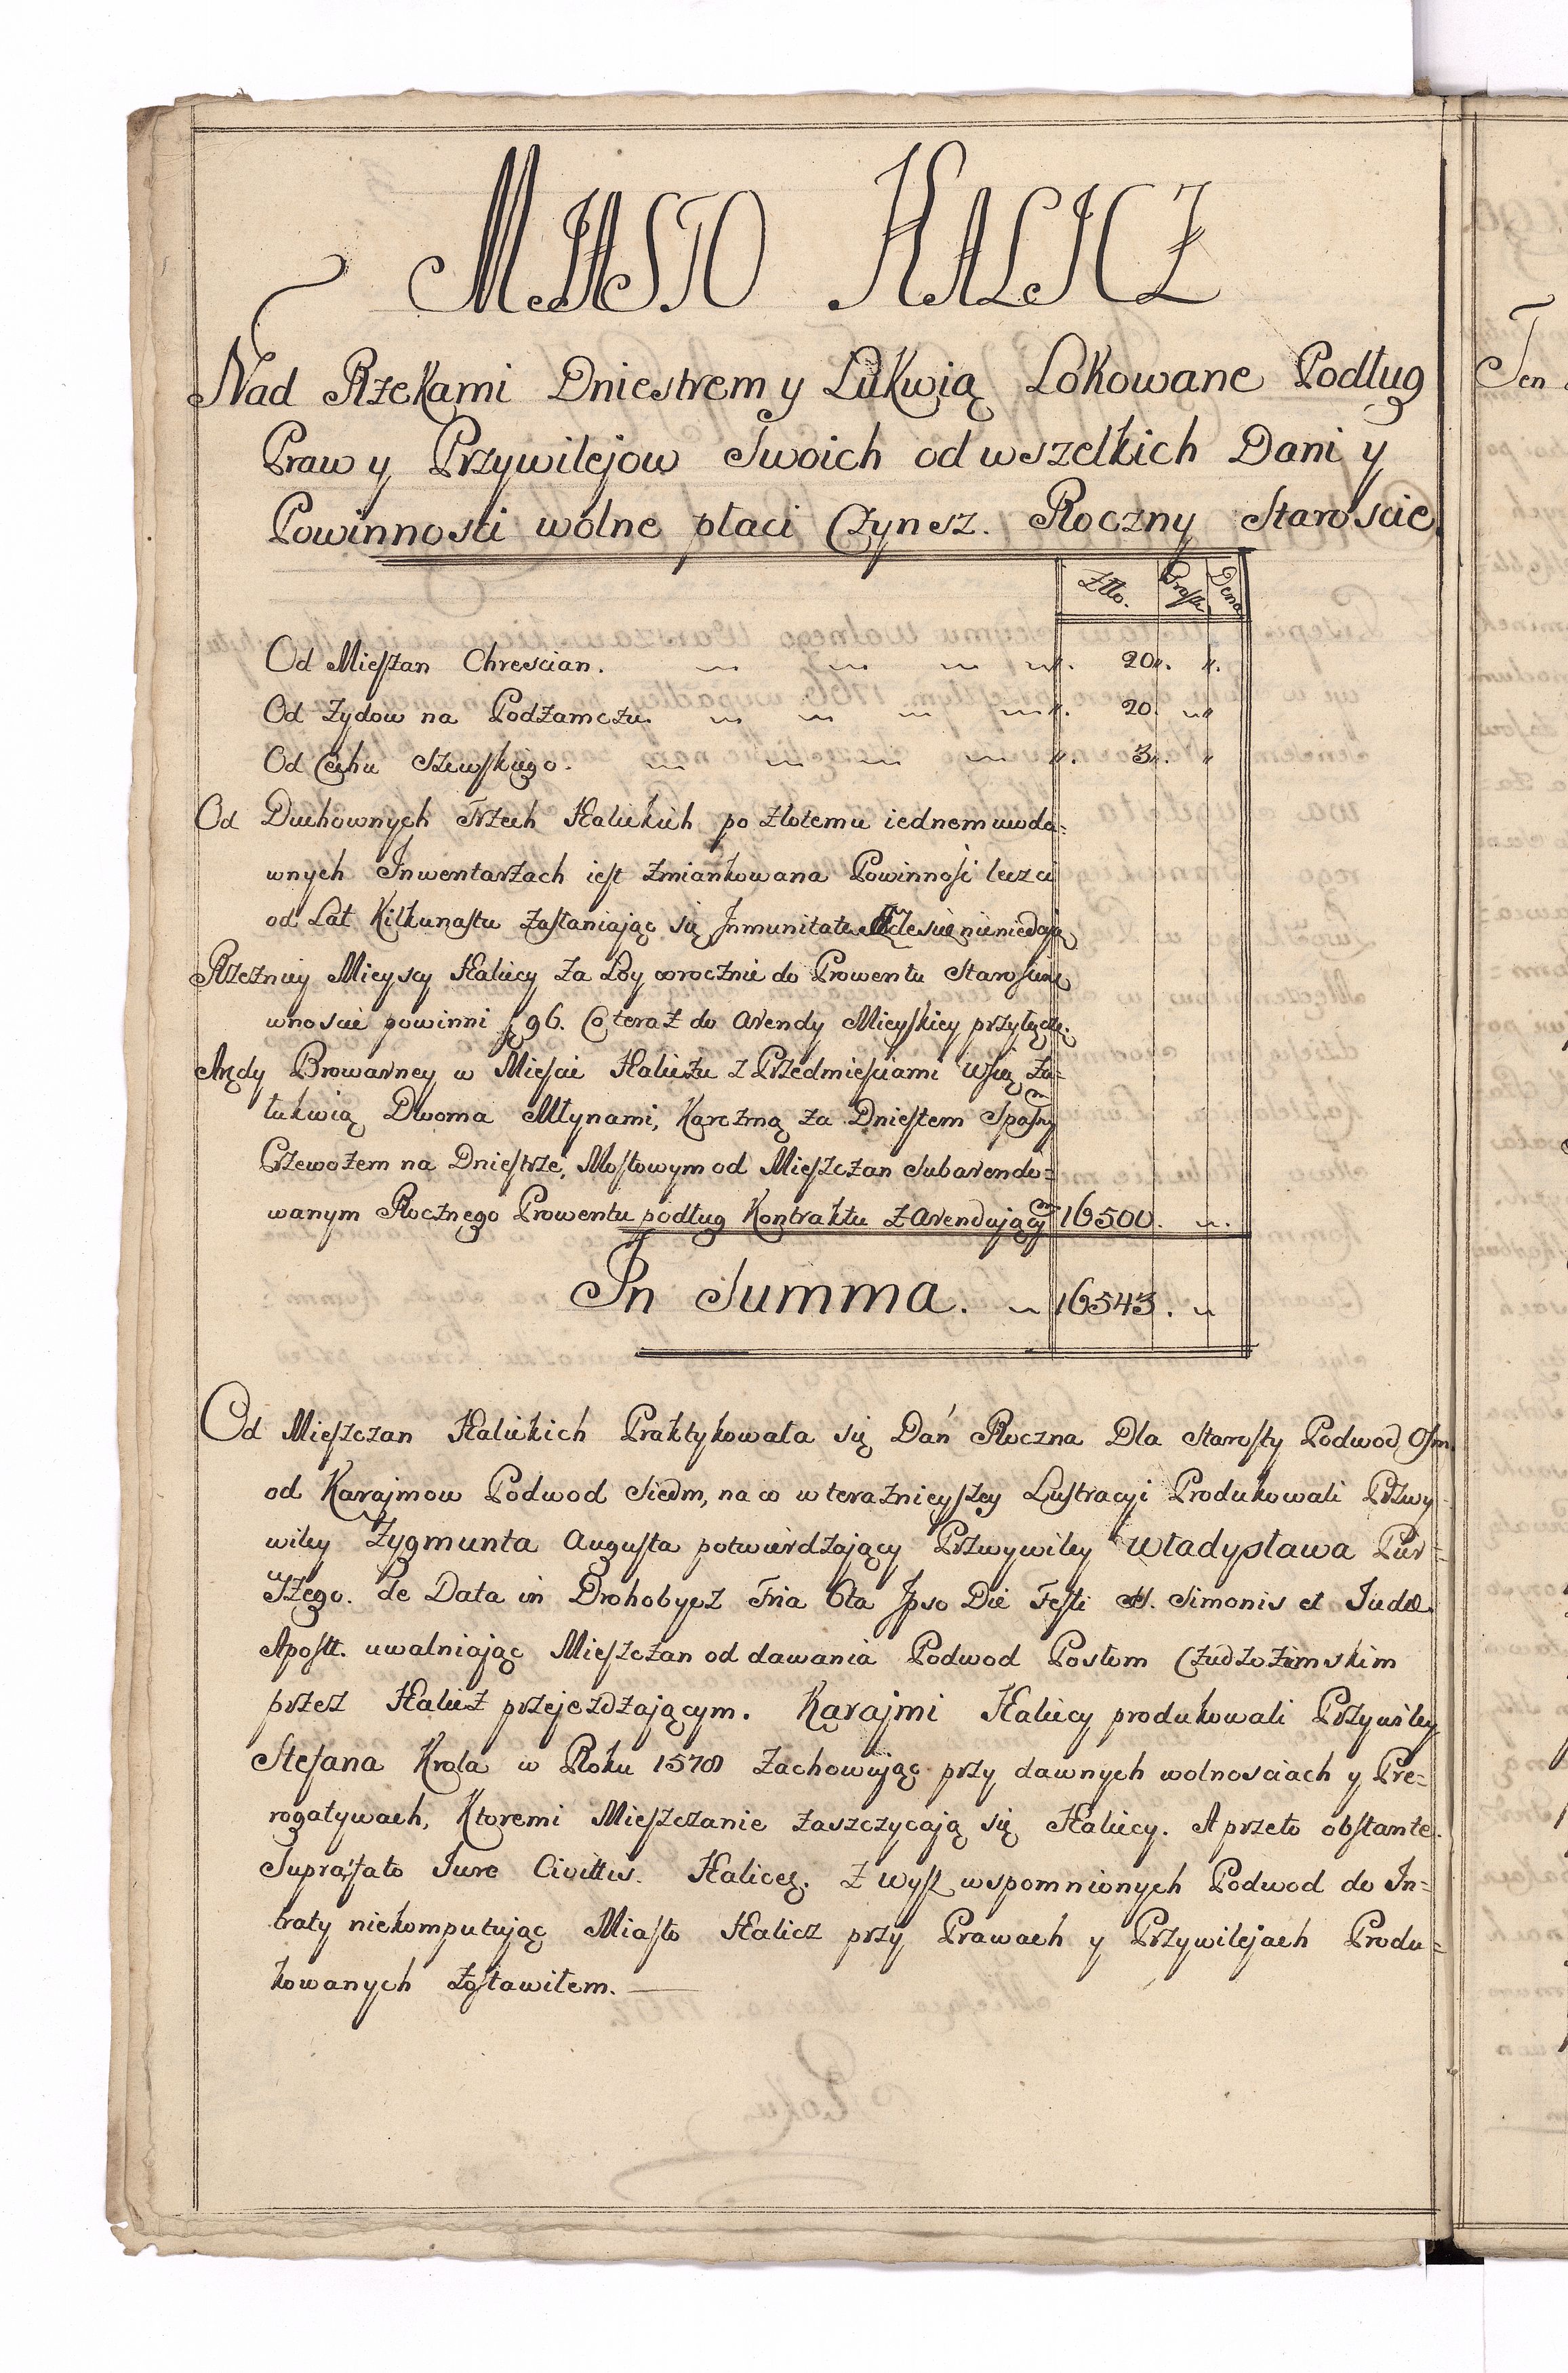 MIASTO HALICZ
Nad Rzekami Dniestrem y Lukwią Lokowane Podług
Praw y Przywilejow Swoich od wszelkich Dani y
Powinnosci wolne płaci Czynsz. Roczny Staroscie.
Złło. Grosze Dena
Od Mieszan Chrescian. 20
Od Zydow na Podzamczu. 20
Od Cechu Szewskiego. 3
Od Duchownych Trzech Halickich po złotemu iednemu w da=
wnych Inwentarzach iest zmiankowana Powinnosć lecz ci
od Lat Kilkunastu zasłaniając się Inmunitate Ecclesiæ nie niedają
Rzeznicy Mieyscy Haliccy za Łoy corocznie do Prowentu Starosciń
wnosić powinni f 96. Co teraz do Arendy Mieyskiey przyłącz.
Arędy Browarney w Miescie Haliczu z Przedmiesciami Wsią Za=
łukwią Dwoma Młynami, Karczmą za Dniestrem Spasnym
Przewozem na Dniestrze, Mostowym od Mieszczan Subarendo=
wanym Rocznego Prowentu podług Kontraktu z Arendującym 16500.
In Summa. 16543.
Od Mieszczan Halickich Praktykowała się Dań Roczna Dla Starosty Podwod Osm.
od Karajmow Podwod Siedm, na co w teraznieyszey Lustracyi Produkowali Przwy
wiley Zygmunta Augusta potwierdzający Przwywiley Władysława Pier=
wszego. de Data in Drohobycz Fria 6ta Ipso Die Festi SS. Simonis et Judæ
Apostt. uwalniając Mieszczan od dawania Podwod Posłom Czudzoziemskim
przez Halicz przejezdzającym. Karajmi Haliccy produkowali Przywiley
Stefana Krola w Roku 1578 zachowując przy dawnych wolnosciach y Pre=
rogatywach, Ktoremi Mieszczanie zaszczycają się Haliccy. A przeto obstante
Suprafato Jure Civittis. Halicez. z wysz wspomnionych Podwod do In=
traty niekomputując Miasto Halicz przy Prawach y Przywilejach Produ=
kowanych zostawiłem.
Ten